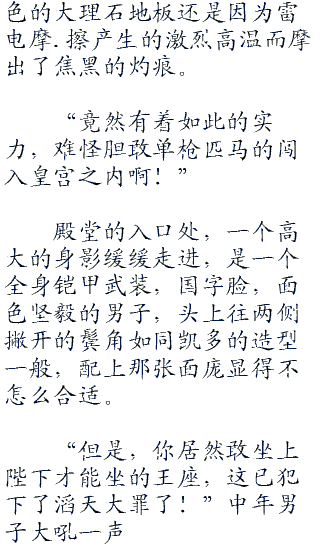 色的大理石地板还是因为雷
电摩.擦产生的激烈高温而摩
出了焦黑的灼痕。
“竟然有着如此的实
力，难怪胆敢单枪匹马的闯
入皇宫之内啊！”
殿堂的入口处，一个高
大的身影缓缓走进，是一个
全身铠甲武装，国字脸，面
色坚毅的男子，头上往两侧
撇开的鬓角如同凯多的造型
一般，配上那张面庞显得不
怎么合适。
“但是，你居然敢坐上
陛下才能坐的王座，这已犯
下了滔天大罪了！”中年男
子大吼一声